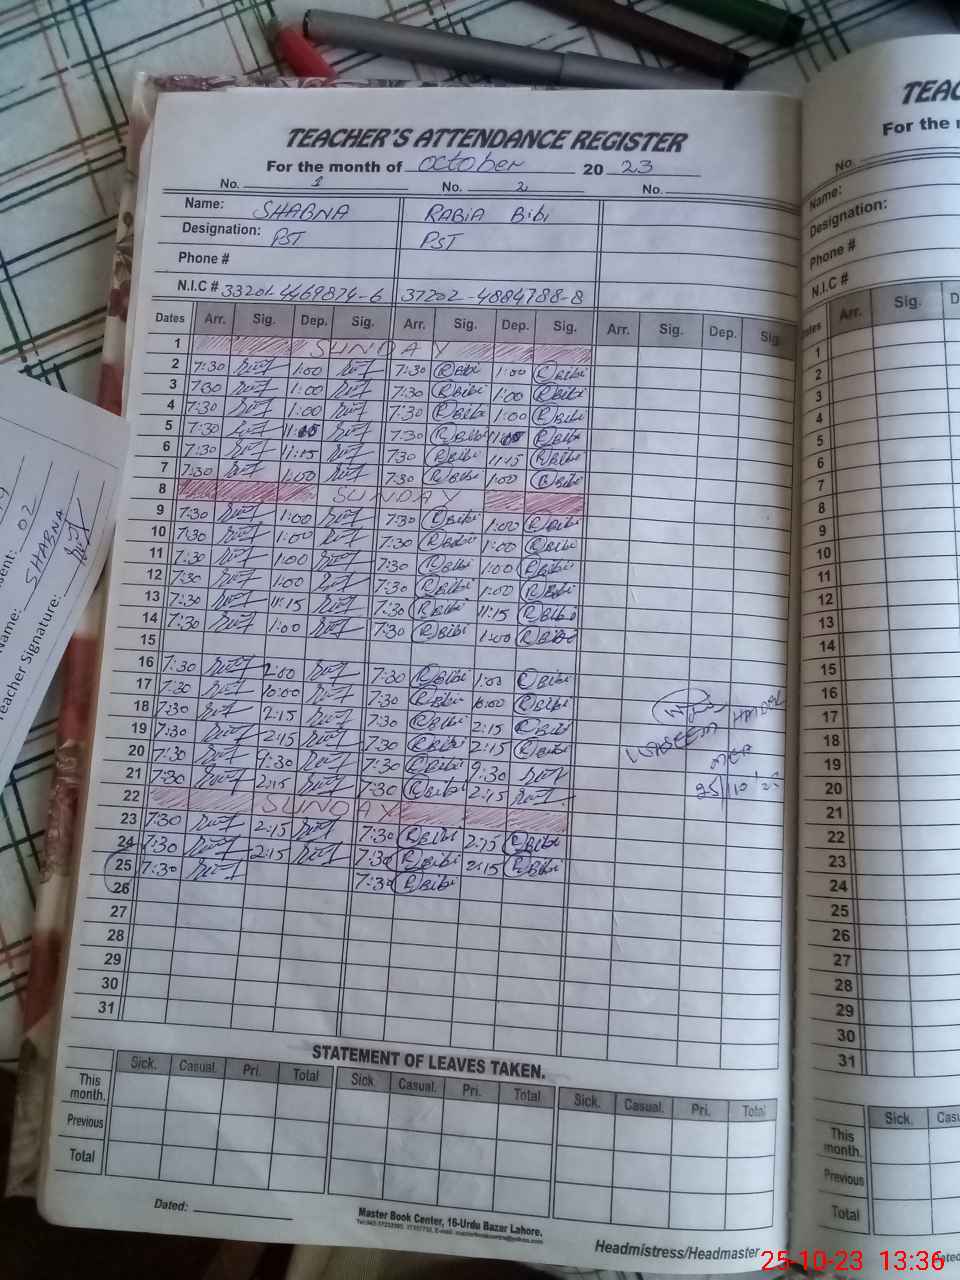 TEACHER'S ATTENDANCE REGISTER
For the month of October 20 23
No. 1 No. 2 No.
Name: SHABNA RABIA Bibi
Designation: PST PST
Phone #
N.I.C # 33201-4469874-6 37202-4884788-8
Dates Arr. Sig. Dep. Sig. Arr. Sig. Dep. Sig. Arr. Sig. Dep. Sig.
1 SUNDAY
2 7:30 1:00 7:30 R Bibi 1:00 R Bibi
3 7:30 1:00 7:30 R Bibi 1:00 R Bibi
4 7:30 1:00 7:30 R Bibi 1:00 R Bibi
5 7:30 7:30 R Bibi R Bibi
6 7:30 11:15 7:30 R Bibi 11:15 R Bibi
7 7:30 1:00 7:30 R Bibi 1:00 R Bibi
8 SUNDAY
9 7:30 1:00 7:30 R Bibi 1:00 R Bibi
10 7:30 1:00 7:30 R Bibi 1:00 R Bibi
11 7:30 1:00 7:30 R Bibi 1:00 R Bibi
12 7:30 1:00 7:30 R Bibi 1:00 R Bibi
13 7:30 11:15 7:30 R Bibi 11:15 R Bibi
14 7:30 1:00 7:30 R Bibi 1:00 R Bibi
15
16 7:30 2:00 7:30 R Bibi 1:00 R Bibi
17 7:30 7:30 R Bibi R Bibi
18 7:30 2:15 7:30 R Bibi 2:15 R Bibi
19 7:30 2:15 7:30 R Bibi 2:15 R Bibi
20 7:30 9:30 7:30 R Bibi 9:30
21 7:30 2:15 7:30 R Bibi 2:15
22 SUNDAY
23 7:30 2:15 7:30 R Bibi 2:15 R Bibi
24 7:30 2:15 7:30 R Bibi 2:15 R Bibi
25 7:30 7:30 R Bibi
26
27
28
29
30
31
WASEEM HAIDER
MEA
25/10/23
STATEMENT OF LEAVES TAKEN.
Sick. Casual. Pri. Total Sick. Casual. Pri. Total Sick. Casual. Pri. Total
This month.
Previous
Total
Dated:
Master Book Center, 16-Urdu Bazar Lahore.
Headmistress/Headmaster
TEAC
For the
No.
Name:
Designation:
Phone #
N.I.C #
Arr. Sig.
1
2
3
4
5
6
7
8
9
10
11
12
13
14
15
16
17
18
19
20
21
22
23
24
25
26
27
28
29
30
31
Sick.
This month.
Previous
Total
sent: 02
Name: SHABNA
Teacher Signature:
25-10-23 13:36